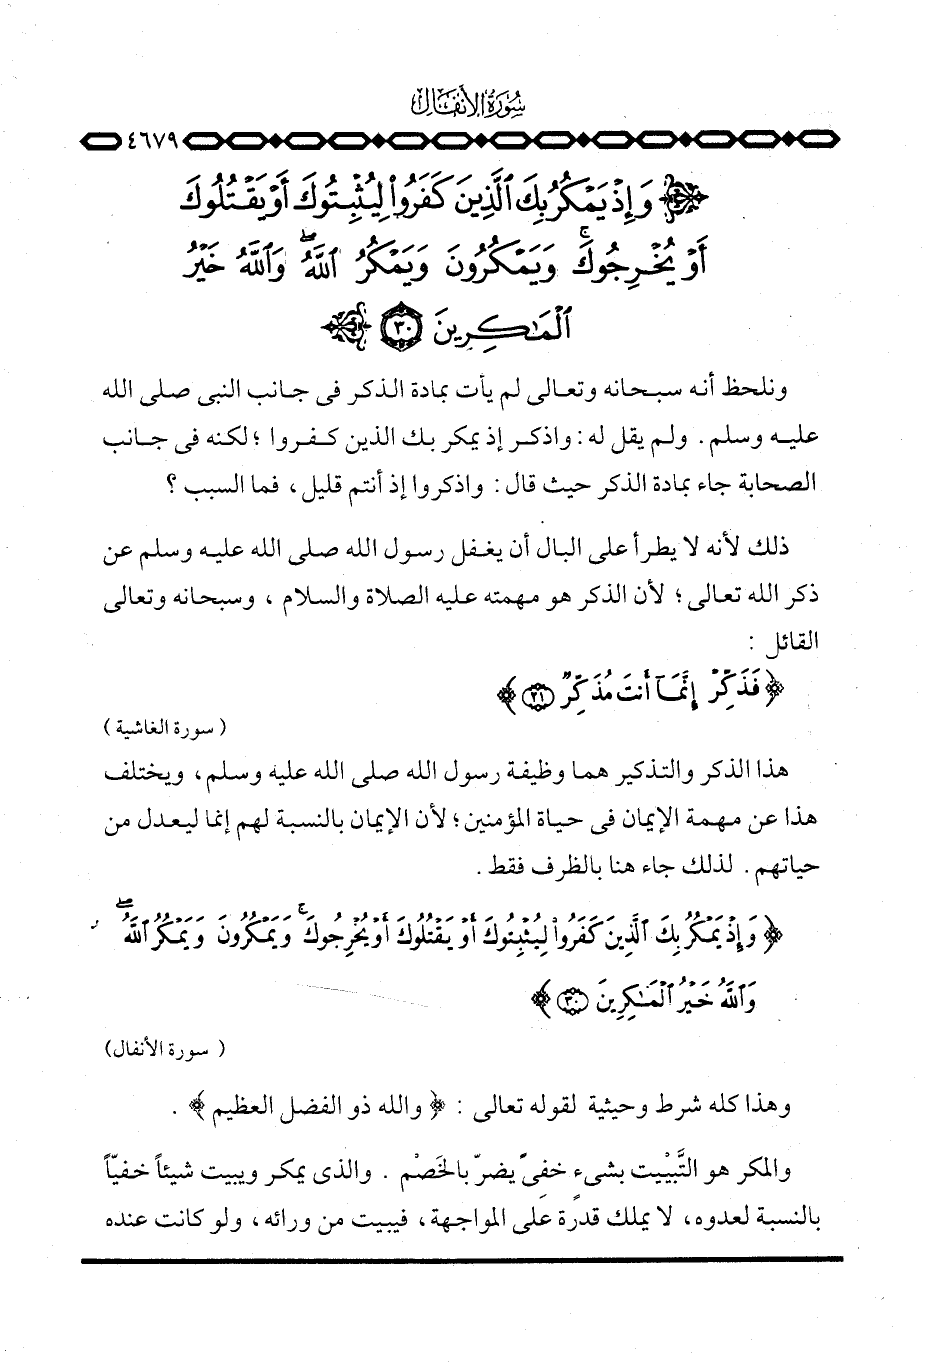 سُورَةُ الأَنفَالِ
٤٦٧٩
وَإِذْ يَمْكُرُ بِكَ ٱلَّذِينَ كَفَرُوا۟ لِيُثْبِتُوكَ أَوْ يَقْتُلُوكَ
أَوْ يُخْرِجُوكَ ۚ وَيَمْكُرُونَ وَيَمْكُرُ ٱللَّهُ ۖ وَٱللَّهُ خَيْرُ
ٱلْمَـٰكِرِينَ ٣٠
ونلحظ أنه سبحانه وتعالى لم يأت بمادة الذكر فى جانب النبى صلى الله
عليه وسلم . ولم يقل له : واذكر إذ يمكر بك الذين كفروا ؛ لكنه فى جانب
الصحابة جاء بمادة الذكر حيث قال : واذكروا إذ أنتم قليل ، فما السبب ؟
ذلك لأنه لا يطرأ على البال أن يغفل رسول الله صلى الله عليه وسلم عن
ذكر الله تعالى ؛ لأن الذكر هو مهمته عليه الصلاة والسلام ، وسبحانه وتعالى
القائل :
﴿ فَذَكِّرْ إِنَّمَآ أَنتَ مُذَكِّرٌ ٢١ ﴾
( سورة الغاشية )
هذا الذكر والتذكير هما وظيفة رسول الله صلى الله عليه وسلم ، ويختلف
هذا عن مهمة الإيمان فى حياة المؤمنين ؛ لأن الإيمان بالنسبة لهم إنما ليعدل من
حياتهم . لذلك جاء هنا بالظرف فقط .
﴿ وَإِذْ يَمْكُرُ بِكَ ٱلَّذِينَ كَفَرُوا۟ لِيُثْبِتُوكَ أَوْ يَقْتُلُوكَ أَوْ يُخْرِجُوكَ ۚ وَيَمْكُرُونَ وَيَمْكُرُ ٱللَّهُ ۖ
وَٱللَّهُ خَيْرُ ٱلْمَـٰكِرِينَ ٣٠ ﴾
( سورة الأنفال )
وهذا كله شرط وحيثية لقوله تعالى : ﴿ والله ذو الفضل العظيم ﴾ .
والمكر هو التَّبْيِيت بشىءٍ خفىّ يضرّ بالخَصْم . والذى يمكر ويبيت شيئاً خفيّاً
بالنسبة لعدوه ، لا يملك قدرة على المواجهة ، فيبيت من ورائه ، ولو كانت عنده